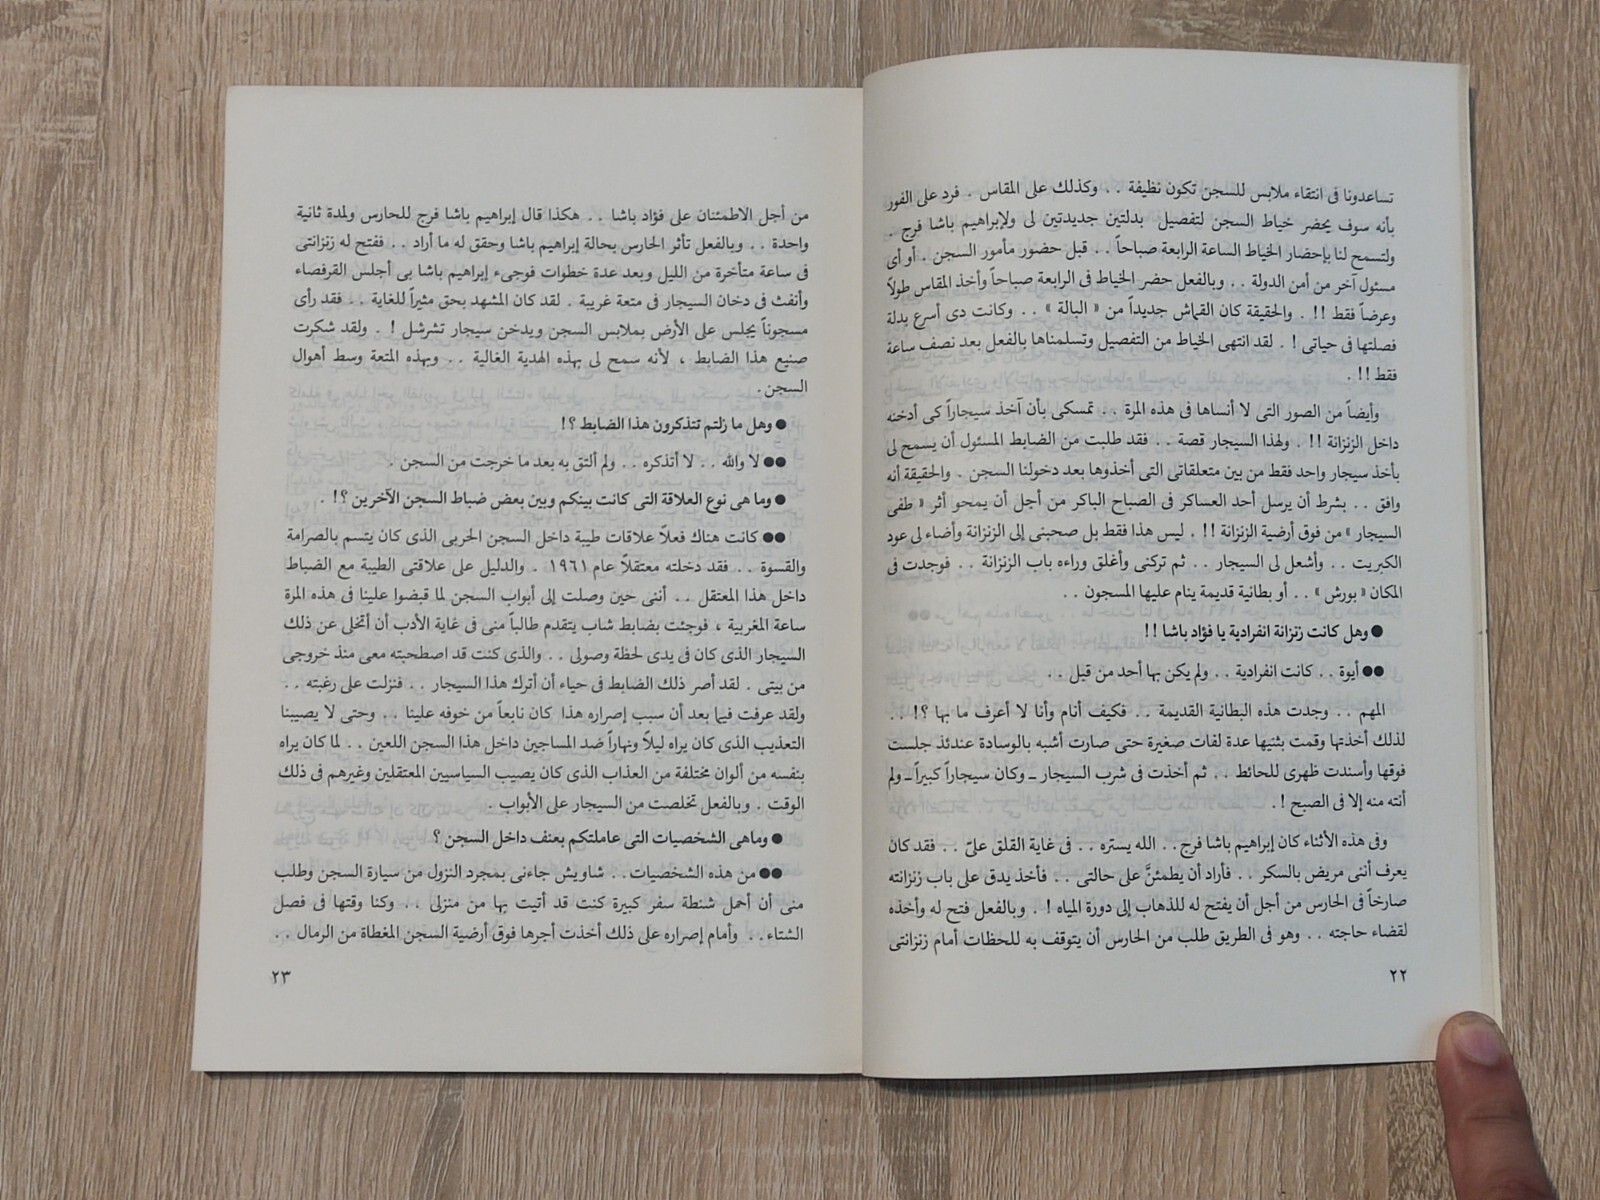 تساعدونا فى انتقاء ملابس للسجن تكون نظيفة . . وكذلك على المقاس . فرد على الفور
بأنه سوف يحضر خياط السجن لتفصيل بدلتين جديدتين لى ولإبراهيم باشا فرج .
ولتسمح لنا بإحضار الخياط الساعة الرابعة صباحاً . . قبل حضور مأمور السجن . أو أى
مسئول آخر من أمن الدولة . . وبالفعل حضر الخياط فى الرابعة صباحاً وأخذ المقاس طولاً
وعرضاً فقط !! . والحقيقة كان القماش جديداً من « البالة » . . وكانت دى أسرع بدلة
فصلتها فى حياتى ! . لقد انتهى الخياط من التفصيل وتسلمناها بالفعل بعد نصف ساعة
فقط !! .
وأيضاً من الصور التى لا أنساها فى هذه المرة . . تمسكى بأن آخذ سيجاراً كى أدخنه
داخل الزنزانة !! . ولهذا السيجار قصة . . فقد طلبت من الضابط المسئول أن يسمح لى
بأخذ سيجار واحد فقط من بين متعلقاتى التى أخذوها بعد دخولنا السجن . والحقيقة أنه
وافق . . بشرط أن يرسل أحد العساكر فى الصباح الباكر من أجل أن يمحو أثر « طفى
السيجار » من فوق أرضية الزنزانة !! . ليس هذا فقط بل صحبنى إلى الزنزانة وأضاء لى عود
الكبريت . . وأشعل لى السيجار . . ثم تركنى وأغلق وراءه باب الزنزانة . . فوجدت فى
المكان « بورش » . . أو بطانية قديمة ينام عليها المسجون . .
● وهل كانت زنزانة انفرادية يا فؤاد باشا !!
●● أيوة . . كانت انفرادية . . ولم يكن بها أحد من قبل . .
المهم . . وجدت هذه البطانية القديمة . . فكيف أنام وأنا لا أعرف ما بها ؟! . .
لذلك أخذتها وقمت بثنيها عدة لفات صغيرة حتى صارت أشبه بالوسادة عندئذ جلست
فوقها وأسندت ظهرى للحائط . . ثم أخذت فى شرب السيجار ــ وكان سيجاراً كبيراً ــ ولم
أنته منه إلا فى الصبح ! .
وفى هذه الأثناء كان إبراهيم باشا فرج . . الله يستره . . فى غاية القلق علىّ . . فقد كان
يعرف أننى مريض بالسكر . . فأراد أن يطمئنَّ على حالتى . . فأخذ يدق على باب زنزانته
صارخاً فى الحارس من أجل أن يفتح له للذهاب إلى دورة المياه ! . وبالفعل فتح له وأخذه
لقضاء حاجته . . وهو فى الطريق طلب من الحارس أن يتوقف به للحظات أمام زنزانتى
٢٢
من أجل الاطمئنان على فؤاد باشا . . هكذا قال إبراهيم باشا فرج للحارس ولمدة ثانية
واحدة . . وبالفعل تأثر الحارس بحالة إبراهيم باشا وحقق له ما أراد . . ففتح له زنزانتى
فى ساعة متأخرة من الليل وبعد عدة خطوات فوجىء إبراهيم باشا بى أجلس القرفصاء
وأنفث فى دخان السيجار فى متعة غريبة . لقد كان المشهد بحق مثيراً للغاية . . فقد رأى
مسجوناً يجلس على الأرض بملابس السجن ويدخن سيجار تشرشل ! . ولقد شكرت
صنيع هذا الضابط ، لأنه سمح لى بهذه الهدية الغالية . . وبهذه المتعة وسط أهوال
السجن .
● وهل ما زلتم تتذكرون هذا الضابط ؟!
●● لا والله . . لا أتذكره . . ولم ألتق به بعد ما خرجت من السجن .
● وما هى نوع العلاقة التى كانت بينكم وبين بعض ضباط السجن الآخرين ؟! .
●● كانت هناك فعلاً علاقات طيبة داخل السجن الحربى الذى كان يتسم بالصرامة
والقسوة . . فقد دخلته معتقلاً عام ١٩٦١ . والدليل على علاقتى الطيبة مع الضباط
داخل هذا المعتقل . . أننى حين وصلت إلى أبواب السجن لما قبضوا علينا فى هذه المرة
ساعة المغربية ، فوجئت بضابط شاب يتقدم طالباً منى فى غاية الأدب أن أتخلى عن ذلك
السيجار الذى كان فى يدى لحظة وصولى . . والذى كنت قد اصطحبته معى منذ خروجى
من بيتى . لقد أصر ذلك الضابط فى حياء أن أترك هذا السيجار . . فنزلت على رغبته . .
ولقد عرفت فيما بعد أن سبب إصراره هذا كان نابعاً من خوفه علينا . . وحتى لا يصيبنا
التعذيب الذى كان يراه ليلاً ونهاراً ضد المساجين داخل هذا السجن اللعين . . لما كان يراه
بنفسه من ألوان مختلفة من العذاب الذى كان يصيب السياسيين المعتقلين وغيرهم فى ذلك
الوقت . وبالفعل تخلصت من السيجار على الأبواب .
● وماهى الشخصيات التى عاملتكم بعنف داخل السجن ؟
●● من هذه الشخصيات . . شاويش جاءنى بمجرد النزول من سيارة السجن وطلب
منى أن أحمل شنطة سفر كبيرة كنت قد أتيت بها من منزلى . . وكنا وقتها فى فصل
الشتاء . . وأمام إصراره على ذلك أخذت أجرها فوق أرضية السجن المغطاة من الرمال . .
٢٣